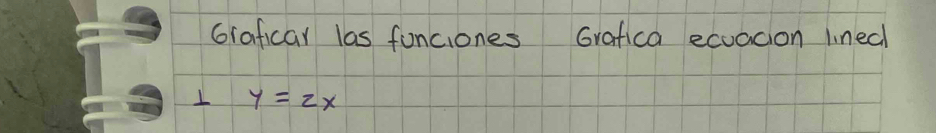 Graficar las funciones Grafica ecuacion lineal
1 y = 2x